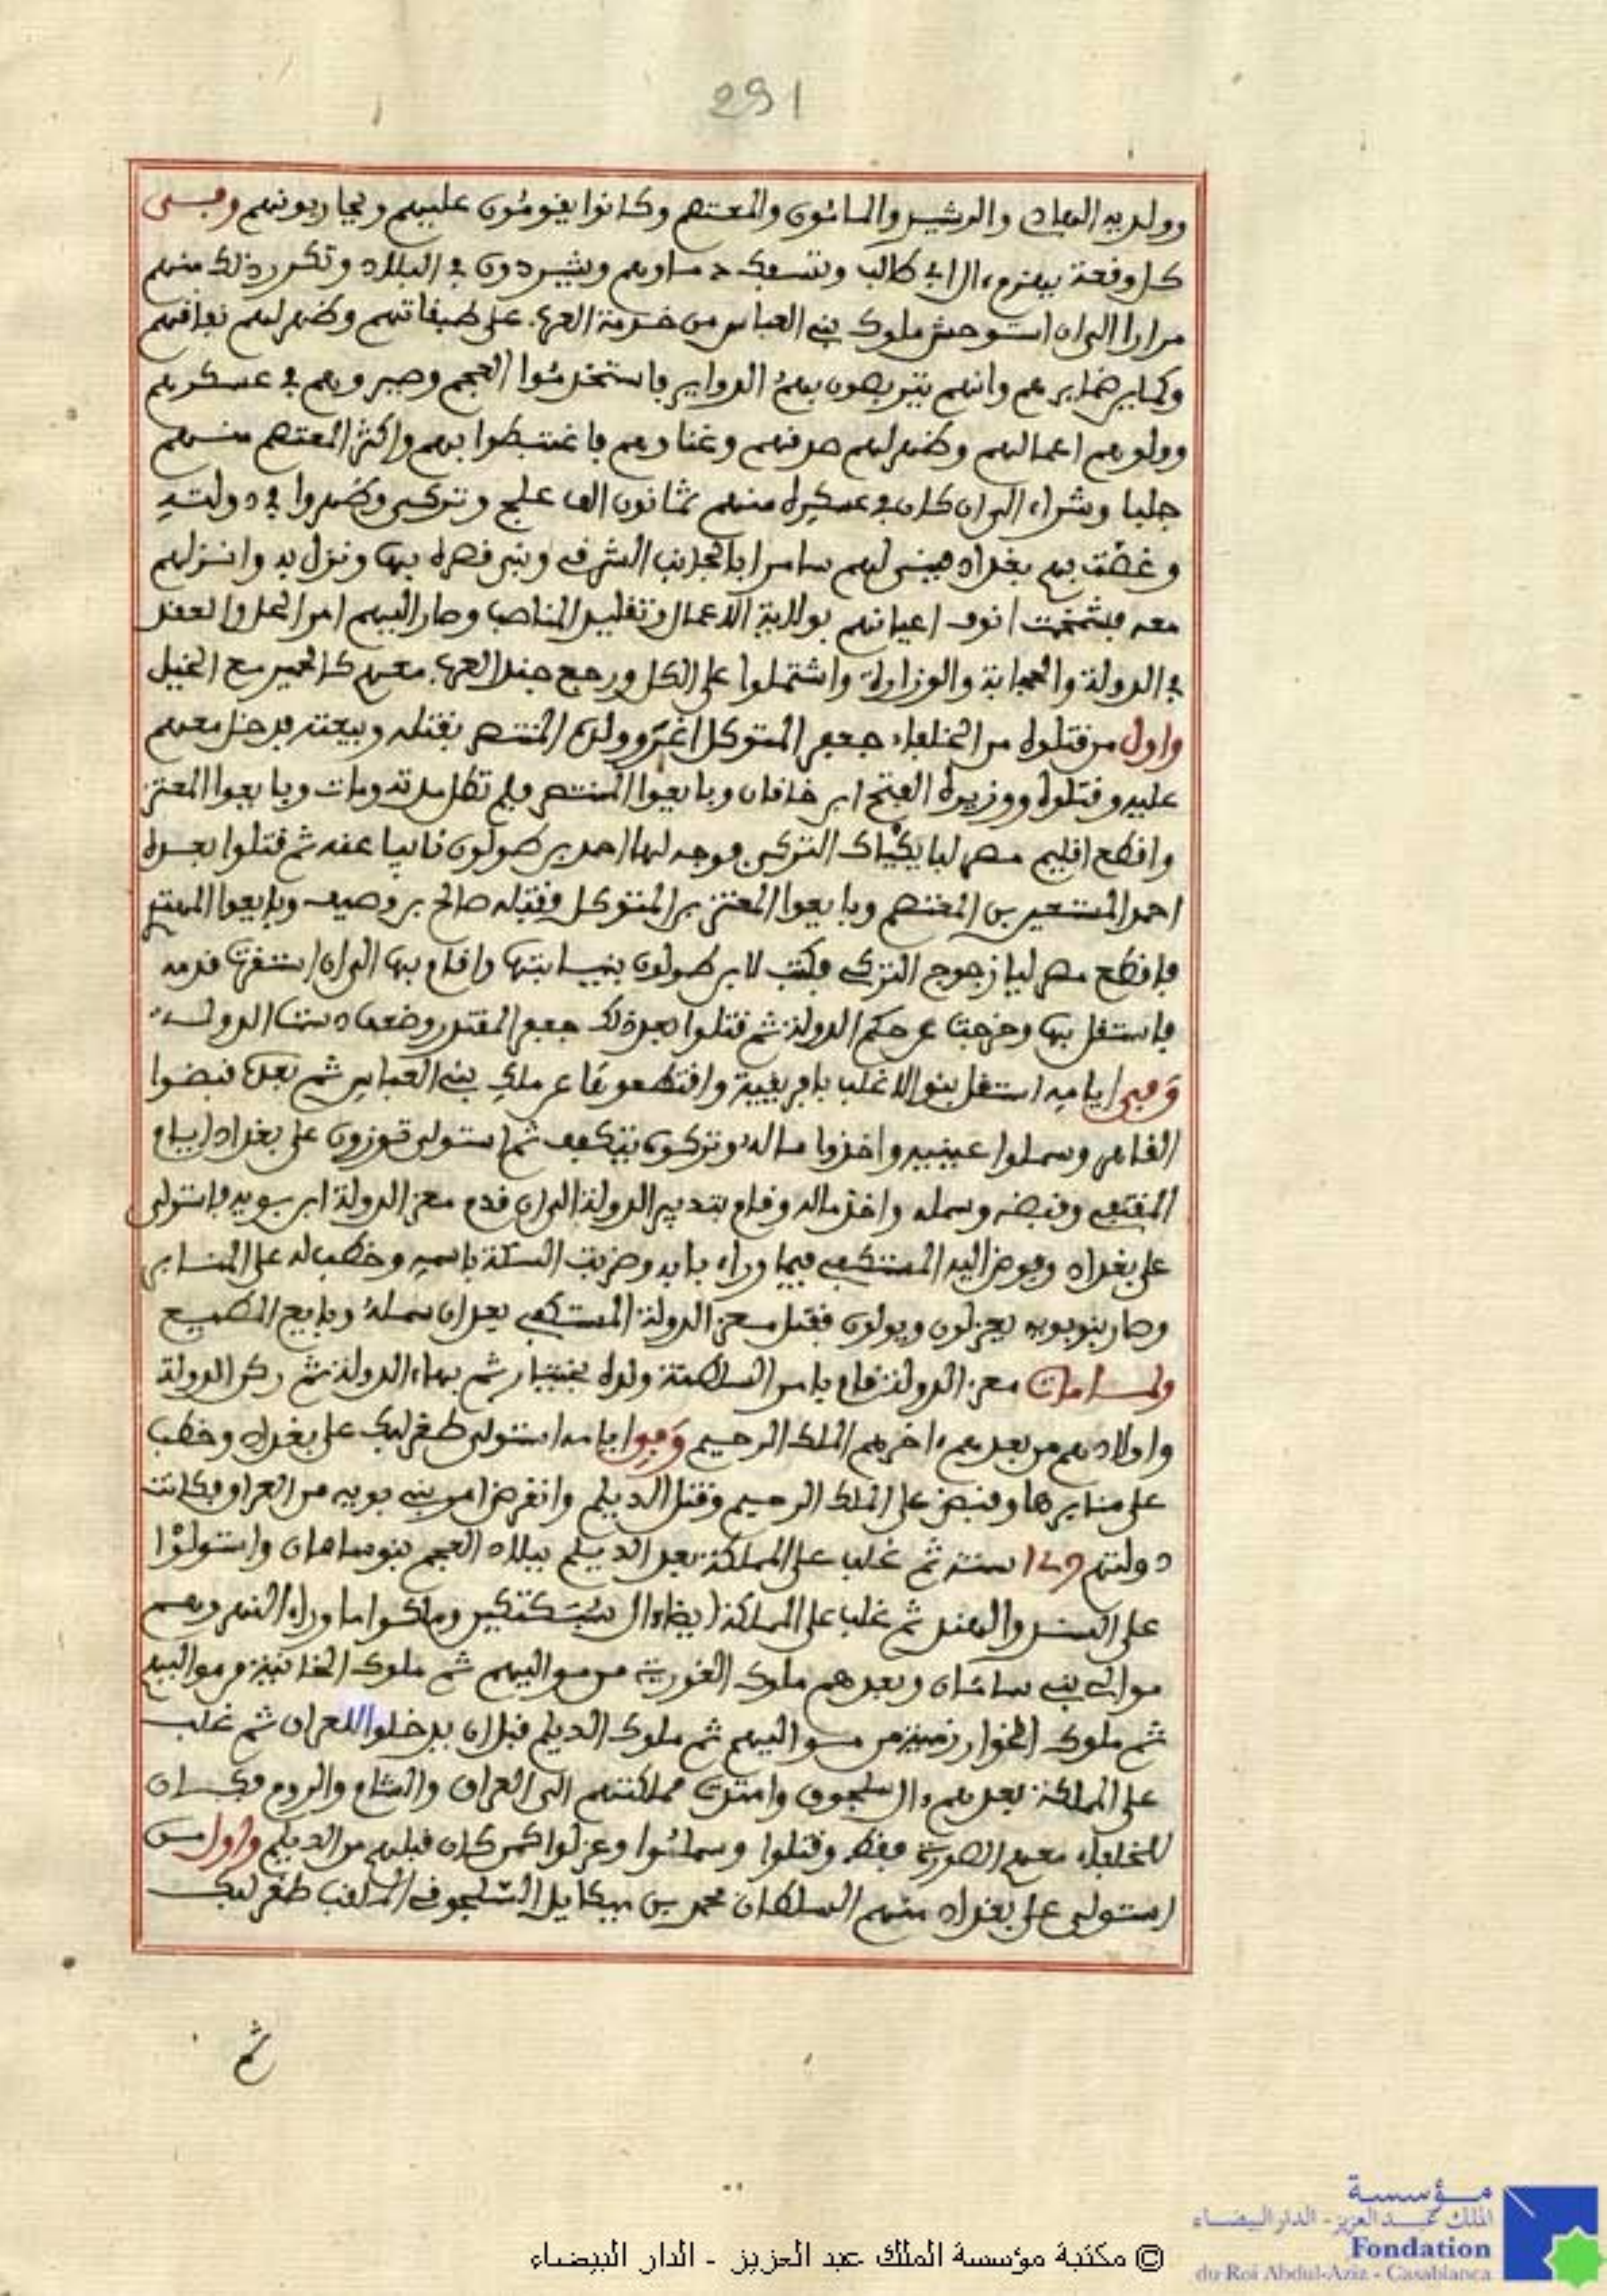 291
وولديه الهادي والرشيد والمامون والمعتصم وكانوا يقومون عليهم ويحاربونهم وفى
كل وقعة يهزم ءال ابي طالب وتسفك دماوهم ويشردون في البلاد وتكرر ذلك منهم
مرارا الى ان استوحش ملوك بني العباس من خدمة العرب على طبقاتهم وظهر لهم نفاقهم
وضماير هم وانهم يتربصون بهم الدواير فاستخدموا العجم وصيروهم في عسكرهم
وولوهم اعمالهم وظهر لهم صدقهم وغناوهم فاغتبطوا بهم واكثر المعتصم منهم
جلبا وشراء الى ان كان في عسكره منهم ثمانون الف علج وتركي وظهروا في دولته
وغصت بهم بغداد فبنى لهم سامرا بالجانب الشرقي وبنى قصره بها ونزل به وانزلهم
معه فشمخت انوف اعيانهم بولاية الاعمال وتقليد المناصب وصار اليهم امر الحل والعقد
في الدولة والحجابة والوزارة واشتملوا على الكل ورجع جند العرب معهم كالحمير مع الخيل
واول من قتلوه من الخلفاء جعفر المتوكل اغروا ولده المنتصر بقتله وبيعته فدخل معهم
عليه وقتلوه ووزيره الفتح ابن خاقان وبايعوا المنتصر فلم تطل مدته ومات وبايعوا المعتز
واقطع اقليم مصر لبايكباك التركي فوجه لها احمد بن طولون نائبا عنه ثم قتلوا بعده
احمد المستعين بن المعتصم وبايعوا المعتز بن المتوكل فقتله صالح بن وصيف وبايعوا المهتدي
فاقطع مصر ليازجوج التركي فكتب لابن طولون بنيابتها واقام بها الى ان استقرت قدمه
فاستقل بها وخرجت عن حكم الدولة ثم قتلوا بعد ذلك جعفر المقتدر وضعفت الدولة
وفي ايامه استقل بنو الاغلب بافريقية واقتطعوها عن ملك بني العباس ثم بعدها قبضوا
القاهر وسملوا عينيه واخذوا ماله وتركوه يتكفف ثم استولى توزون على بغداد ايام
المتقي وقبضه وسمله واخذ ماله وقام بتدبير الدولة الى ان قدم معز الدولة ابن بويه فاستولى
على بغداد وفوض اليه المستكفي فيما وراء بابه وضربت السكة باسمه وخطب له على المنابر
وصار بنو بويه يعزلون ويولون فقتل معز الدولة المستكفي بعد ان سمله وبايع المطيع
ولما مات معز الدولة قام بامر السلطنة ولده بختيار ثم بهاء الدولة ثم ركن الدولة
واولادهم من بعدهم ءاخرهم الملك الرحيم وفي ايامه استولى طغرلبك على بغداد وخطب
على منابرها وقبض على الملك الرحيم وقتل الديلم وانقرض امر بني بويه من العراق وكانت
دولتهم سنة ثم غلب على المملكة بعد الديلم ببلاد العجم بنو سامان واستولوا
على السند والهند ثم غلب على المملكة ايضا ءال سبكتكين وملكوا ما وراء النهر وهم
موالي بني سامان وبعدهم ملوك الغورية من مواليهم ثم ملوك الخانية من مواليهم
ثم ملوك الخوارزمية من مواليهم ثم ملوك الديلم قبل ان يدخلوا للعراق ثم غلب
على المملكة بعدهم ءال سلجوق وامتدت مملكتهم الى العراق والشام والروم فكان
للخلفاء معهم الصورة فقط وقتلوا وسملوا وعزلوا كمن كان قبلهم من الديلم واول من
استولى على بغداد منهم السلطان محمد بن ميكايل السلجوقي الملقب طغرلبك
ثم
© مكتبة مؤسسة الملك عبد العزيز - الدار البيضاء
مؤسسة
الملك عبد العزيز - الدار البيضاء
Fondation
du Roi Abdul-Aziz - Casablanca